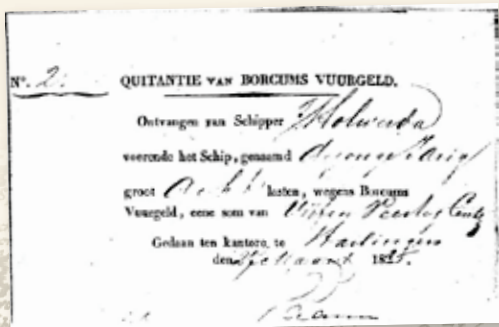 N°. 2.
QUITANTIE VAN BORCUMS VUURGELD.
Ontvangen van Schipper Holwerda
voerende het Schip, genaamd
groot Acht lasten, wegens Borcums
Vuurgeld, eene som van Vijf en Veertig Cents
Gedaan ten kantore, te Harlingen
den Maart 1825.